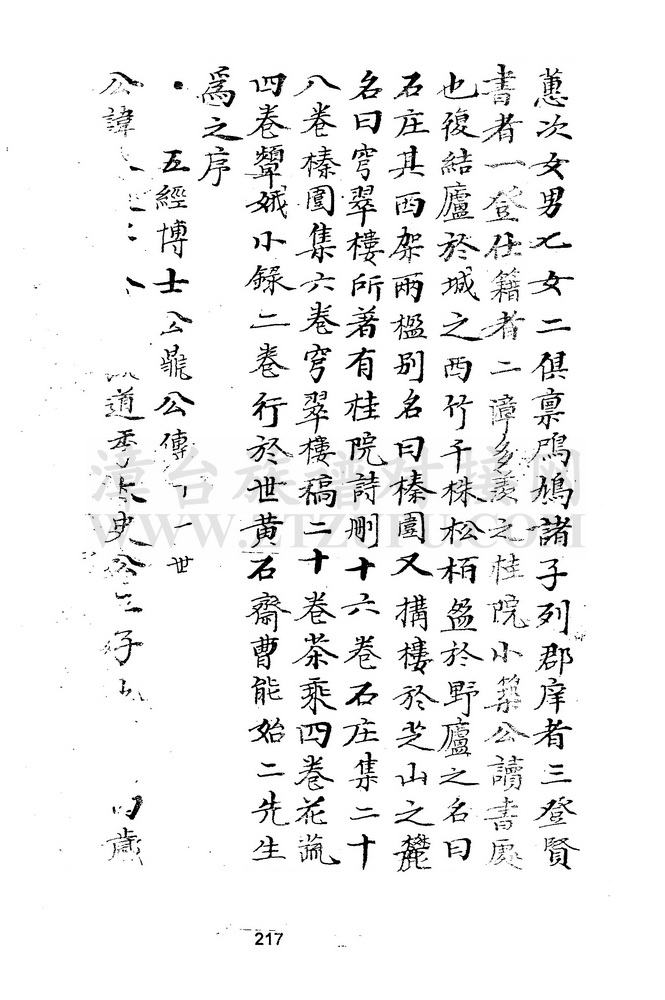 蕙次女男七女二俱稟鳲鳩諸子列郡庠者三登賢
書者一登仕籍者二漳多羨之桂院小築公讀書處
也復結廬於城之西竹千株松栢盈於野廬之名曰
石庄其西架兩楹別名曰榛圃又搆樓於芝山之麓
名曰穹翠樓所著有桂院詩刪十六卷石庄集二十
八卷榛圃集六卷穹翠樓稿二十卷茶乘四卷花疏
四卷顰娥小錄二卷行於世黃石齋曹能始二先生
為之序
五經博士公鼐公傳 一世
公諱 道季太史公 子 歲
漳台族譜對接網
WWW.ZTZUPU.COM
217